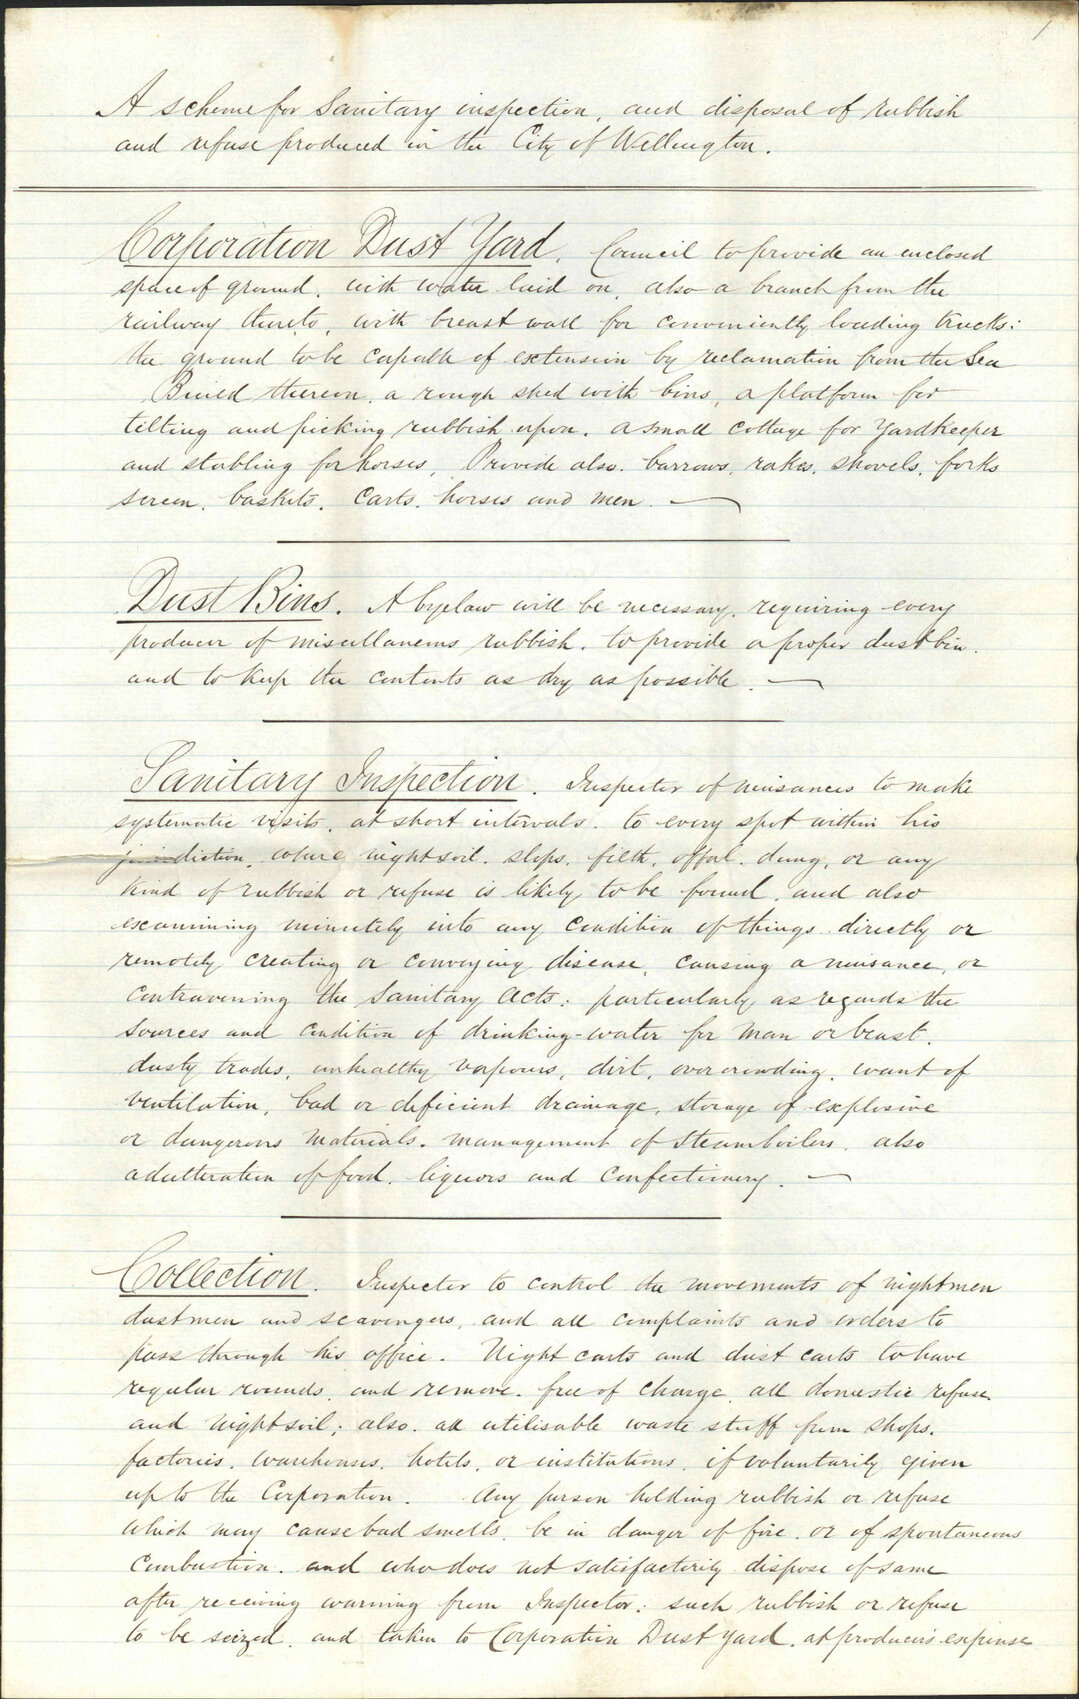 1
A scheme for Sanitary inspection, and disposal of rubbish
and refuse produced in the City of Wellington.
Corporation Dust Yard. Council to provide an enclosed
space of ground, with water laid on, also a branch from the
railway thereto, with breast wall for conveniently loading trucks:
the ground to be capable of extension by reclamation from the Sea
Build thereon, a rough shed with bins, a platform for
tilting and picking rubbish upon, a small cottage for Yardkeeper
and stabling for horses. Provide also, barrows, rakes, shovels, forks
screen, baskets, Carts, horses and men.
Dust Bins. A byelaw will be necessary, requiring every
producer of miscellaneous rubbish, to provide a proper dust bin,
and to keep the contents as dry as possible.
Sanitary Inspection. Inspector of nuisances to make
systematic visits, at short intervals, to every spot within his
jurisdiction, where nightsoil, slops, filth, offal, dung, or any
kind of rubbish or refuse is likely to be found, and also
examining minutely into any condition of things directly or
remotely creating or conveying disease, causing a nuisance, or
contravening the Sanitary Acts: particularly as regards the
sources and condition of drinking-water for man or beast,
dusty trades, unhealthy vapours, dirt, overcrowding, want of
ventilation, bad or deficient drainage, storage of explosive
or dangerous materials, management of steamboilers, also
adulteration of food, liquors and confectionery.
Collection. Inspector to control the movements of nightmen
dustmen and scavengers, and all complaints and orders to
pass through his office. Night carts and dust carts to have
regular rounds, and remove, free of charge, all domestic refuse
and nightsoil; also, all utilisable waste stuff from shops,
factories, warehouses, hotels, or institutions, if voluntarily given
up to the Corporation. Any person holding rubbish or refuse
which may cause bad smells, be in danger of fire, or of spontaneous
combustion, and who does not satisfactorily dispose of same
after receiving warning from Inspector: such rubbish or refuse
to be seized, and taken to Corporation Dust Yard, at producer's expense